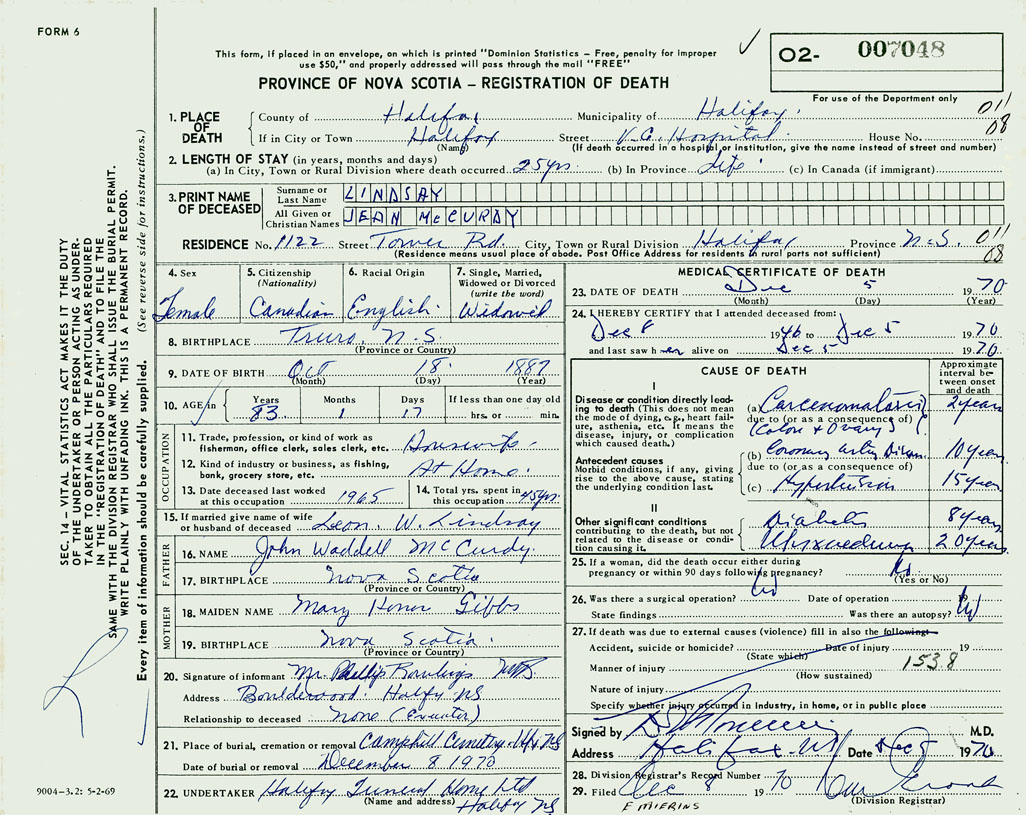 FORM 6
This form, if placed in an envelope, on which is printed "Dominion Statistics – Free, penalty for improper
use $50," and properly addressed will pass through the mail "FREE"
O2- 007048
PROVINCE OF NOVA SCOTIA – REGISTRATION OF DEATH
For use of the Department only
1. PLACE OF DEATH
County of Halifax Municipality of Halifax. 011
If in City or Town Halifax Street V.G. Hospital House No. 08
(Name) (If death occurred in a hospital or institution, give the name instead of street and number)
2. LENGTH OF STAY (in years, months and days)
(a) In City, Town or Rural Division where death occurred 25 yrs. (b) In Province Life (c) In Canada (if immigrant)
3. PRINT NAME OF DECEASED
Surname or Last Name LINDSAY
All Given or Christian Names JEAN McCURDY
RESIDENCE No. 1122 Street Tower Rd. City, Town or Rural Division Halifax Province N.S. 011
(Residence means usual place of abode. Post Office Address for residents in rural parts not sufficient) 08
4. Sex Female
5. Citizenship (Nationality) Canadian
6. Racial Origin English
7. Single, Married, Widowed or Divorced (write the word) Widowed
8. BIRTHPLACE Truro, N.S.
(Province or Country)
9. DATE OF BIRTH Oct 18 1887
(Month) (Day) (Year)
10. AGE in Years 83 Months 1 Days 17 If less than one day old hrs. or min.
OCCUPATION
11. Trade, profession, or kind of work as
fisherman, office clerk, sales clerk, etc. Housewife
12. Kind of industry or business, as fishing,
bank, grocery store, etc. At Home.
13. Date deceased last worked
at this occupation 1965
14. Total yrs. spent in
this occupation 45 yrs.
15. If married give name of wife
or husband of deceased Leon. W. Lindsay
FATHER
16. NAME John Waddell McCurdy.
17. BIRTHPLACE Nova Scotia
(Province or Country)
MOTHER
18. MAIDEN NAME Mary Honor Gibbs
19. BIRTHPLACE Nova Scotia.
(Province or Country)
20. Signature of informant Mr. Phillip Rawlings
Address Boulderwood. Halfx NS
Relationship to deceased None (Executor)
21. Place of burial, cremation or removal Camphill Cemetery. Hfx NS
Date of burial or removal December 8 1970
22. UNDERTAKER Halifax Funeral Home Ltd
(Name and address) Halifax NS
MEDICAL CERTIFICATE OF DEATH
23. DATE OF DEATH Dec 5 1970
(Month) (Day) (Year)
24. I HEREBY CERTIFY that I attended deceased from:
Dec 8 1946 to Dec 5 1970
and last saw her alive on Dec 5 1970
CAUSE OF DEATH
Approximate interval between onset and death
I
Disease or condition directly leading to death (This does not mean the mode of dying, e.g., heart failure, asthenia, etc. It means the disease, injury, or complication which caused death.
(a) Carcinomatosis 2 years
due to (or as a consequence of)
(Colon & Ovary)
Antecedent causes
Morbid conditions, if any, giving rise to the above cause, stating the underlying condition last.
(b) Coronary artery Disease 10 years
due to (or as a consequence of)
(c) Hypertension 15 years
II
Other significant conditions contributing to the death, but not related to the disease or condition causing it.
Diabetes 8 years
20 years
25. If a woman, did the death occur either during
pregnancy or within 90 days following pregnancy? No
(Yes or No)
26. Was there a surgical operation? No Date of operation 19
State findings Was there an autopsy? No
27. If death was due to external causes (violence) fill in also the following:
Accident, suicide or homicide? Date of injury 19
(State which) 153.8
Manner of injury
(How sustained)
Nature of injury
Specify whether injury occurred in industry, in home, or in public place
Signed by M.D.
Address Halifax NS Date Dec 5 1970
28. Division Registrar's Record Number
29. Filed Dec 8 1970
(Division Registrar)
F MIERINS
9004-3.2: 5-2-69
SEC. 14 – VITAL STATISTICS ACT MAKES IT THE DUTY
OF THE UNDERTAKER OR PERSON ACTING AS UNDER-
TAKER TO OBTAIN ALL THE PARTICULARS REQUIRED
IN THE "REGISTRATION OF DEATH" AND TO FILE THE
SAME WITH THE DIVISION REGISTRAR WHO SHALL ISSUE THE BURIAL PERMIT.
WRITE PLAINLY WITH UNFADING INK. THIS IS A PERMANENT RECORD.
Every item of information should be carefully supplied. (See reverse side for instructions.)